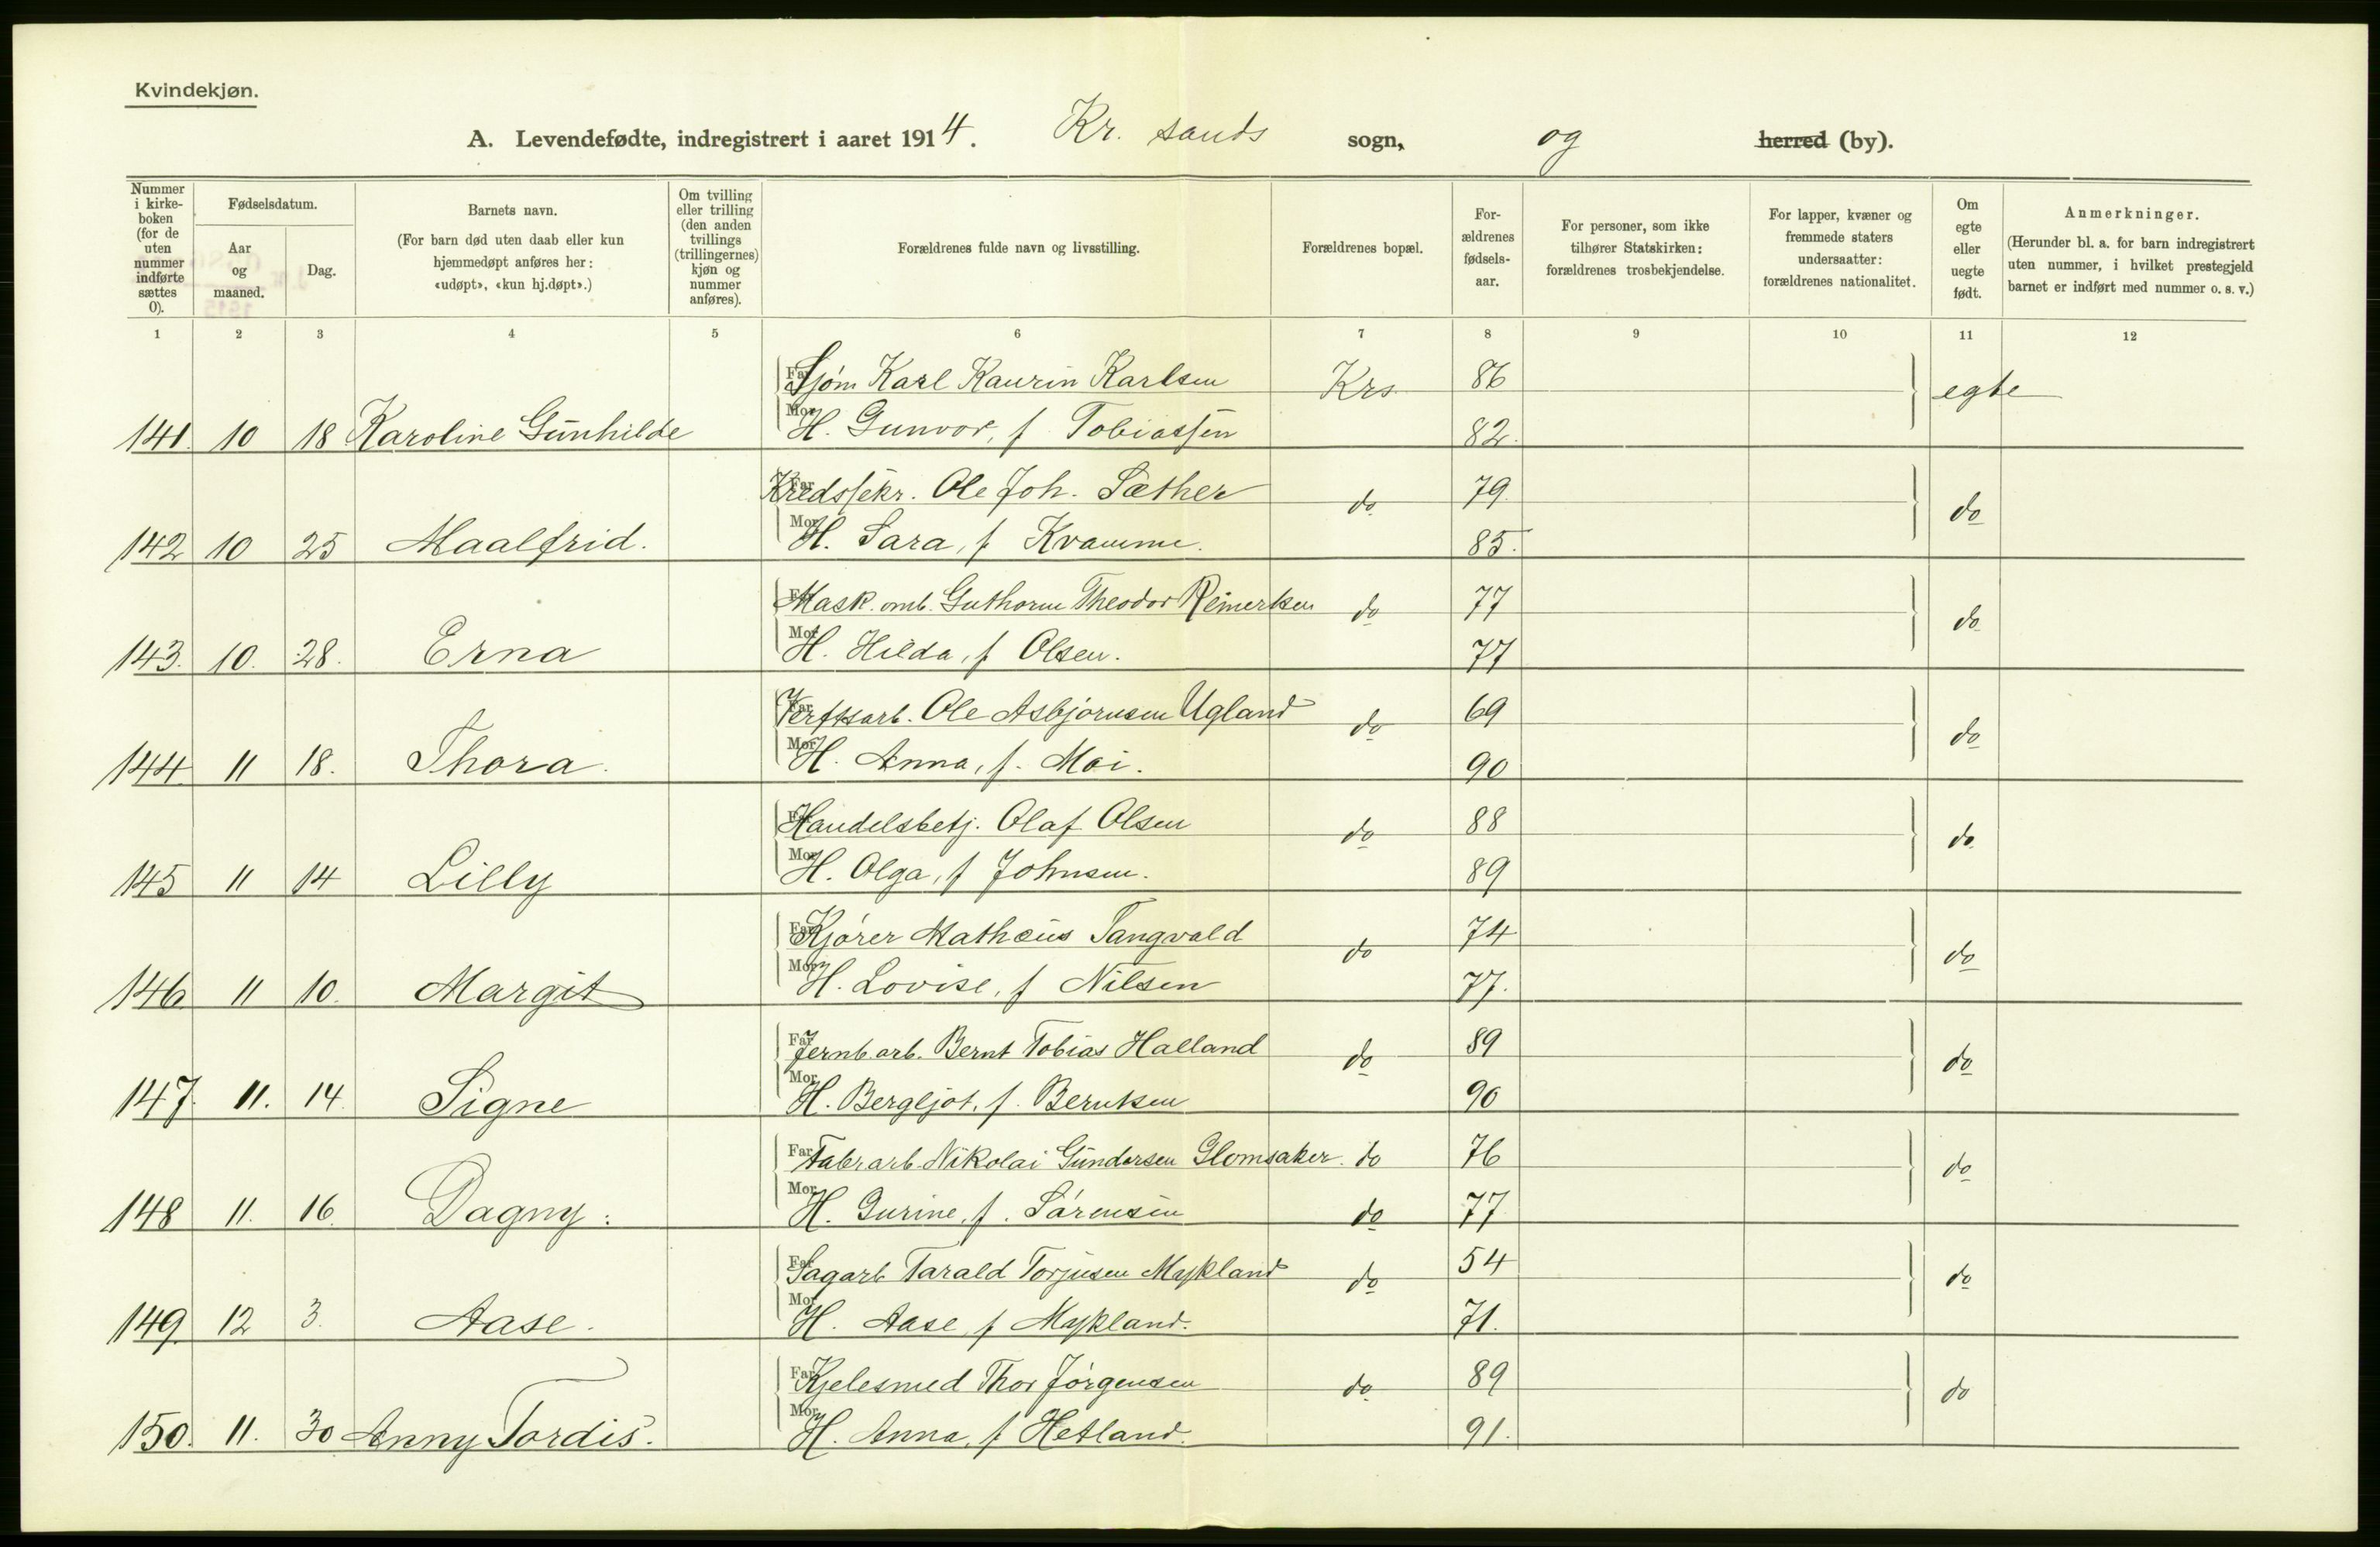 Kvindekjøn.
A. Levendefødte, indregistrert i aaret 1914. Kr. sands sogn, og herred (by).
Nummer i kirke-boken (for de uten nummer indførte sættes 0).
Fødselsdatum.
Aar og maaned.
Dag.
Barnets navn.
(For barn død uten daab eller kun hjemmedøpt anføres her: «udøpt», «kun hj.døpt».)
Om tvilling eller trilling (den anden tvillings (trillingernes) kjøn og nummer anføres).
Forældrenes fulde navn og livsstilling.
Forældrenes bopæl.
For-ældrenes fødsels-aar.
For personer, som ikke tilhører Statskirken: forældrenes trosbekjendelse.
For lapper, kvæner og fremmede staters undersaatter: forældrenes nationalitet.
Om egte eller uegte født.
Anmerkninger.
(Herunder bl. a. for barn indregistrert uten nummer, i hvilket prestegjeld barnet er indført med nummer o. s. v.)
1 2 3 4 5 6 7 8 9 10 11 12
Far Sjøm Karl Kaurin Karlsen Krs. 86 egte
141. 10 18 Karoline Gunhilde Mor H. Gunvor, f Tobiassen 82.
Far Kredssekr. Ole Joh. Sæther do 79. do
142 10 25 Maalfrid. Mor H. Sara, f Kvamme. 85.
Far Mask. omb. Guthorm Theodor Reinertsen do 77 do
143. 10. 28. Erna Mor H. Hilda, f Olsen. 77
Far Verftsarb. Ole Asbjørnsen Ugland do 69 do
144. 11 18. Thora. Mor H. Anna, f. Moi. 90
Far Handelsbetj. Olaf Olsen do 88 do
145 11 14 Lilly Mor H. Olga, f Johnsen. 89
Far Kjører Mathæus Tangvald do 74 do
146. 11 10. Margit Mor H. Lovise, f Nilsen 77.
Far Jernb.arb. Bernt Tobias Halland do 89 do
147. 11. 14. Signe Mor H. Bergljot, f. Berntsen 90
Far Fabr arb. Nikolai Gundersen Glomsaker. do 76 do
148 11. 16. Dagny. Mor H. Gurine, f. Sørensen do 77
Far Sagarb Tarald Torjusen Mykland do 54 do
149. 12 3. Aase. Mor H. Aase f Mykland. 71.
Far Kjelesmed Thor Jørgensen do 89 do
150. 11. 30 Anny Tordis. Mor H. Anna, f Hetland. 91.